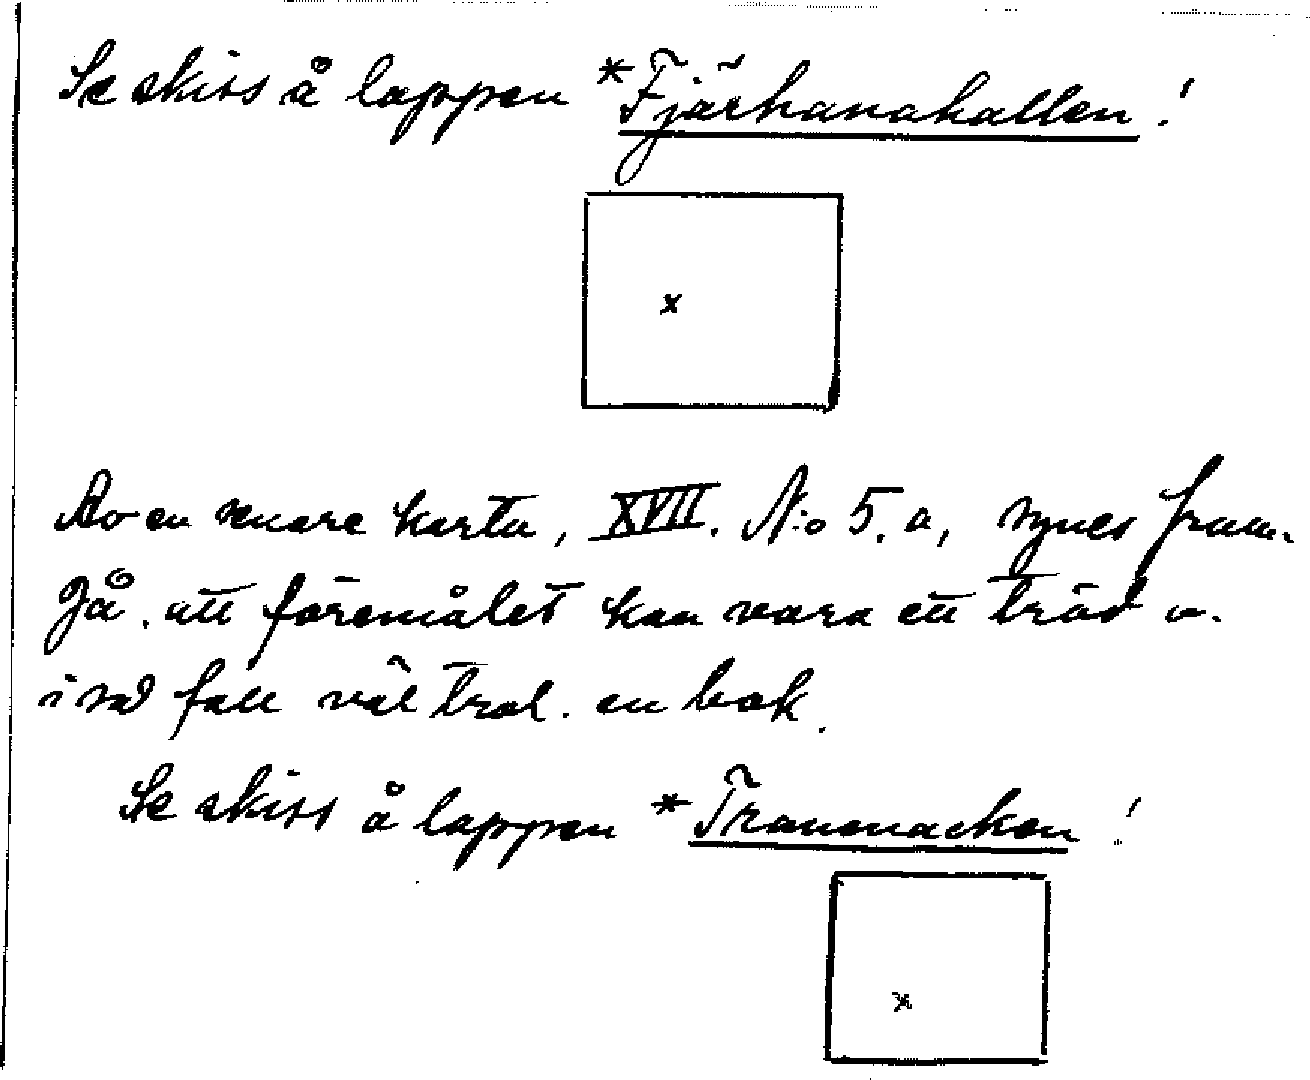 Se skiss å lappen *Fjärhanahallen!
x
Av en senare karta, XVII. N:o 5.a, synes fram-
gå, att föremålet kan vara ett träd o.
i så fall väl trol. en bok.
Se skiss å lappen *Trannacken!
x